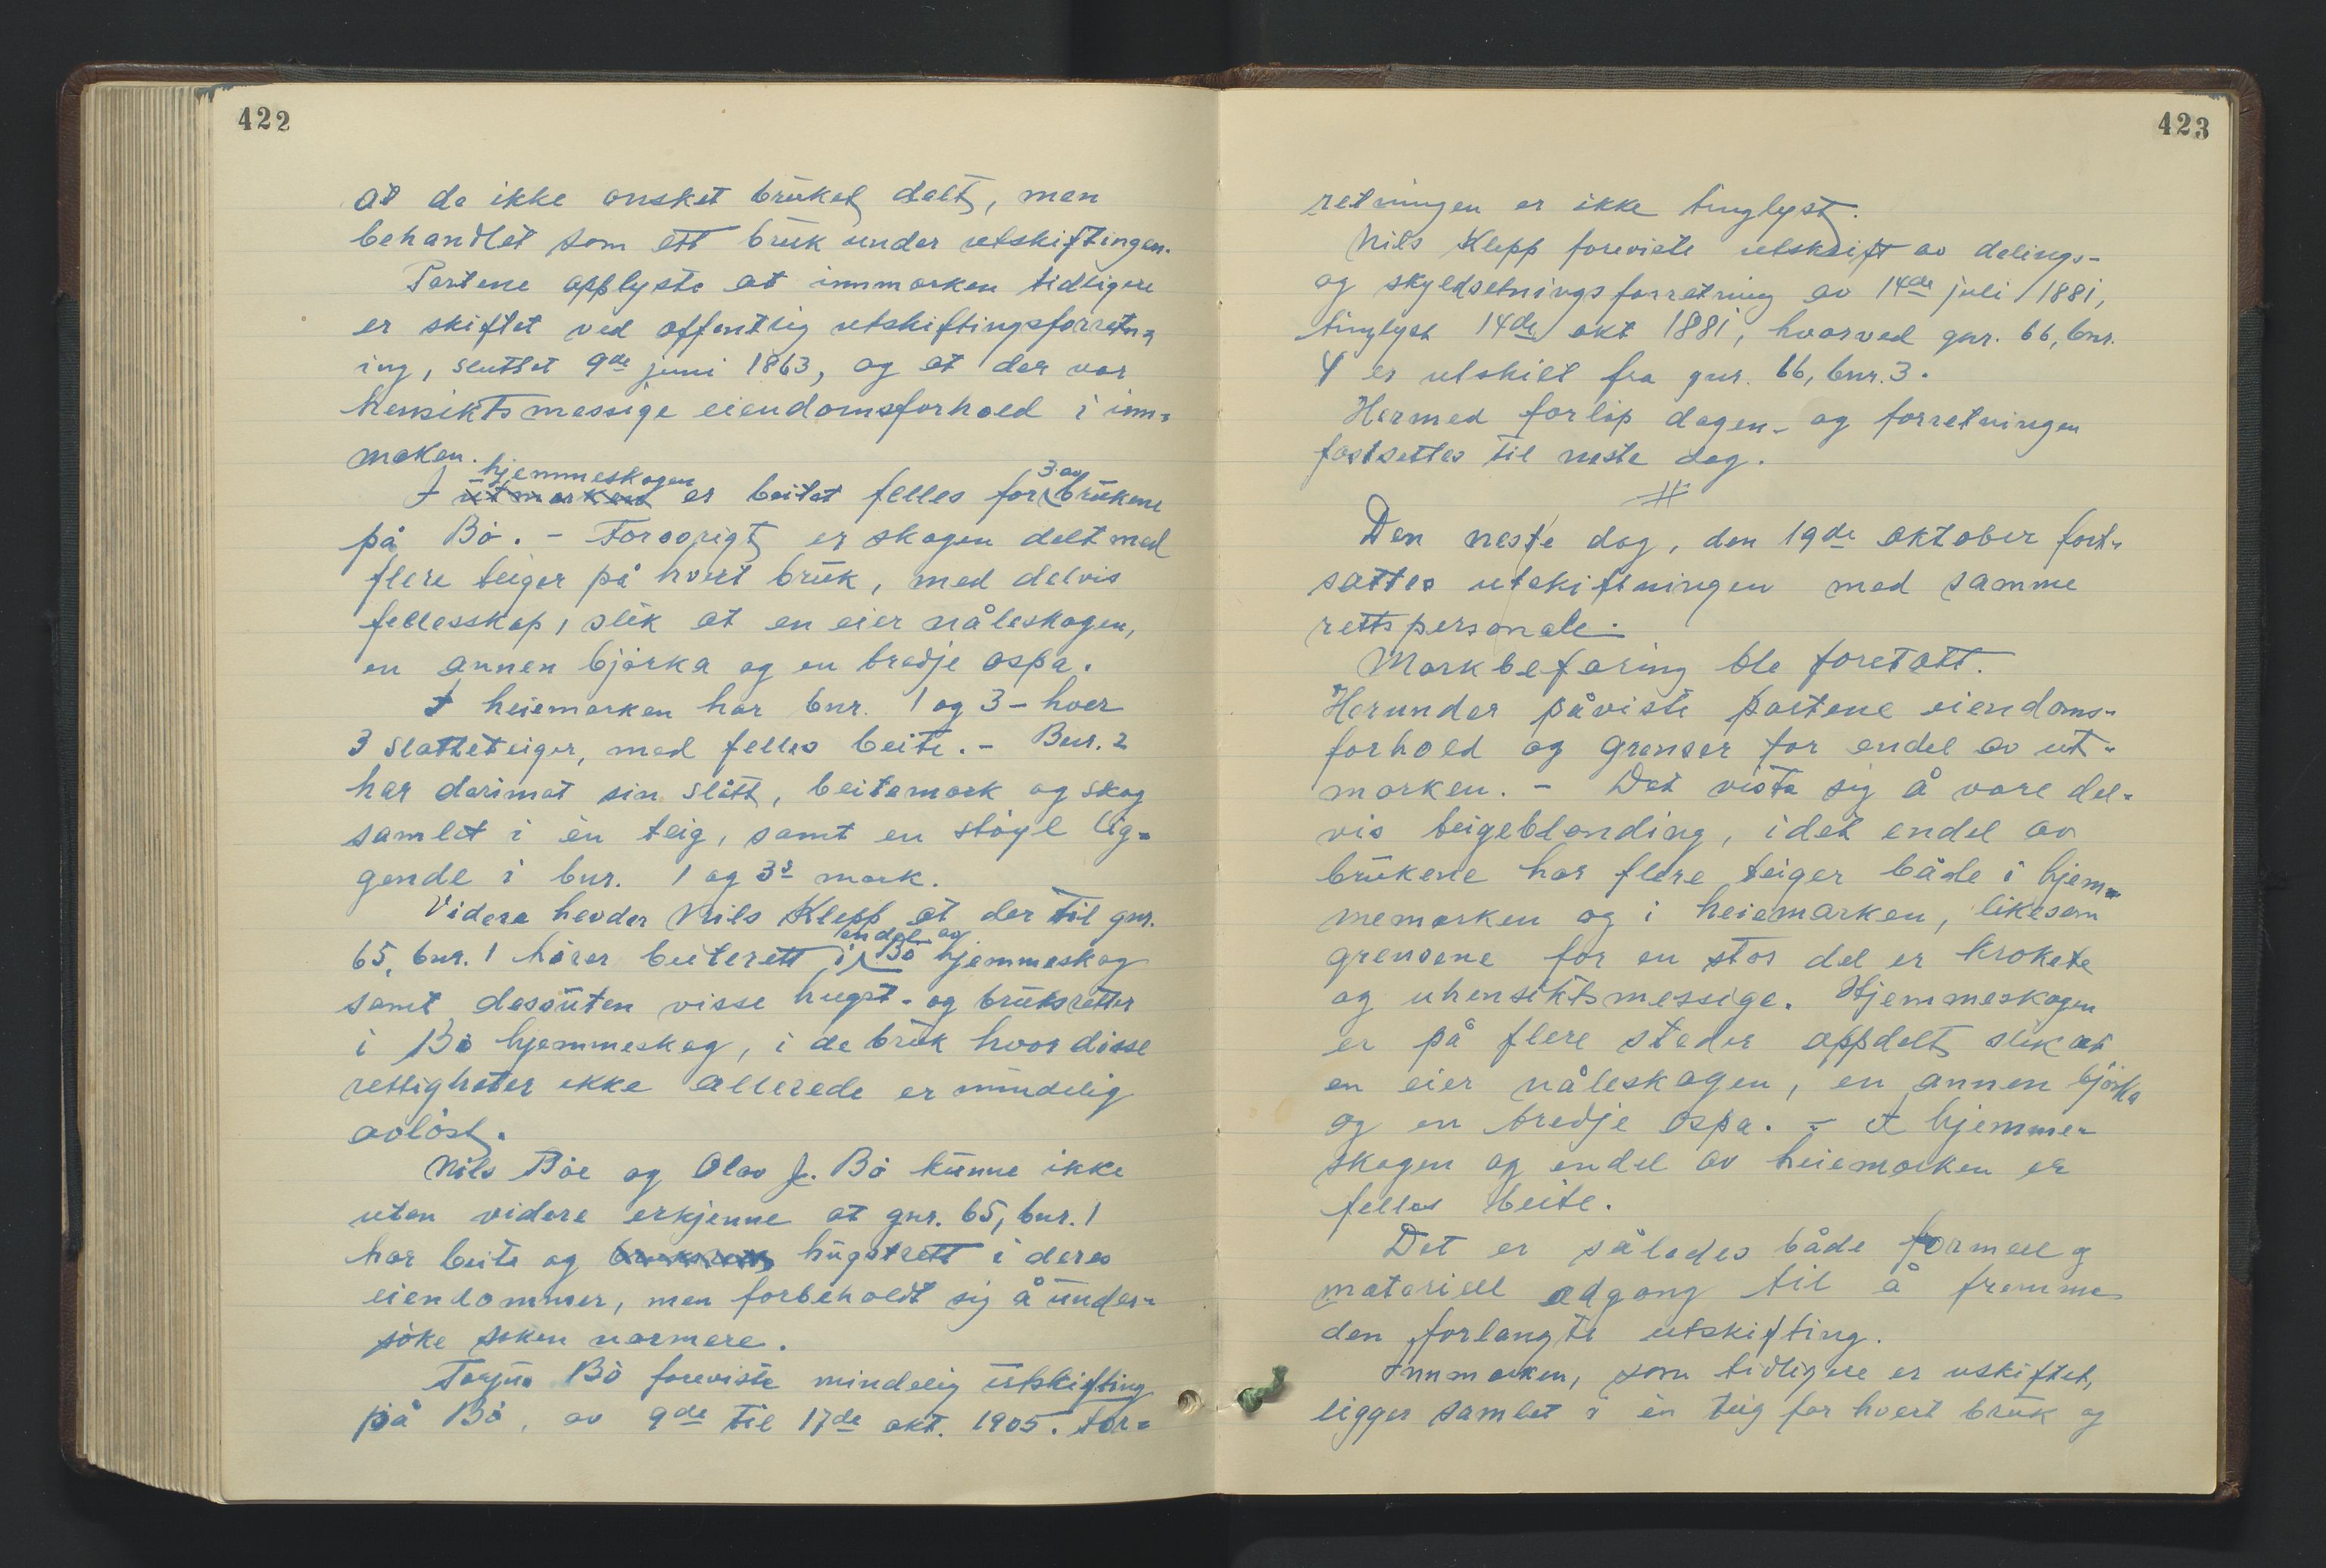 422
at de ikke ønsket bruket delt, men
behandlet som ett bruk under utskiftingen.
Partene opplyste at innmarken tidligere
er skiftet ved offentlig utskiftingsforretn=
ing, sluttet 9de juni 1863, og at der var
hensiktsmessige eiendomsforhold i inn=
maken.
hjemmeskogen 3 av
I utmarken er beitet felles for brukene
på Bö. - Forøvrigt er skogen delt med
flere teiger på hvert bruk, med delvis
fellesskap, slik at en eier nåleskogen,
en annen bjørka og en tredje ospa.
I heiemarken har bnr. 1 og 3 - hver
3 slåtteteiger, med felles beite. - Bnr. 2
har derimot sin slått, beitemark og skog
samlet i èn teig, samt en støyl lig=
gende i bnr. 1 og 3s mark.
Videre hevder Nils Klepp at der til gnr.
endel av
65, bnr. 1 hører beiterett i Bö hjemmeskog
samt dessuten visse hugst- og bruksretter
i Bö hjemmeskog, i de bruk hvor disse
rettigheter ikke allerede er mindelig
avløst.
Nils Böe og Olav J. Bö kunne ikke
uten videre erkjenne at gnr. 65, bnr. 1
har beite og hugstrett i deres
eiendommer, men forbeholdt sig å under=
søke saken nærmere.
Torjus Bö foreviste mindelig utskifting
på Bö, av 9de til 17de okt. 1905. For=
423
retningen er ikke tinglyst.
Nils Klepp foreviste utskrift av delings-
og skyldsetningsforretning av 14de juli 1881,
tinglyst 14de okt 1881, hvorved gnr. 66, bnr.
4 er utskilt fra gnr. 66, bnr. 3.
Hermed forløp dagen - og forretningen
fortsettes til neste dag.
#
Den neste dag, den 19de oktober fort=
sattes utskiftningen med samme
rettspersonale.
Markbefaring ble foretatt.
Herunder påviste partene eiendoms=
forhold og grenser for endel av ut=
marken. - Det viste sig å være del=
vis teigeblanding, idet endel av
brukene har flere teiger både i hjem=
memarken og i heiemarken, likesom
grensene for en stor del er krokete
og uhensiktsmessige. Hjemmeskogen
er på flere steder oppdelt slik at
en eier nåleskogen, en annen bjørka
og en tredje ospa. - I hjemme=
skogen og endel av heiemarken er
felles beite.
Det er således både formell og
materiell adgang til å fremme
den forlangte utskifting.
Innmarken, som tidligere er uskiftet,
ligger samlet i èn teig for hvert bruk og